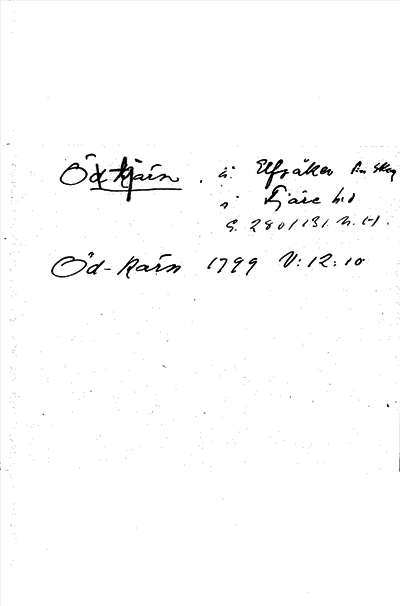 Öd-kjärn . å Elfsåker
i Fjäre hd
G. 280/131. N. H.
Öd-kärn 1799 V:12:10